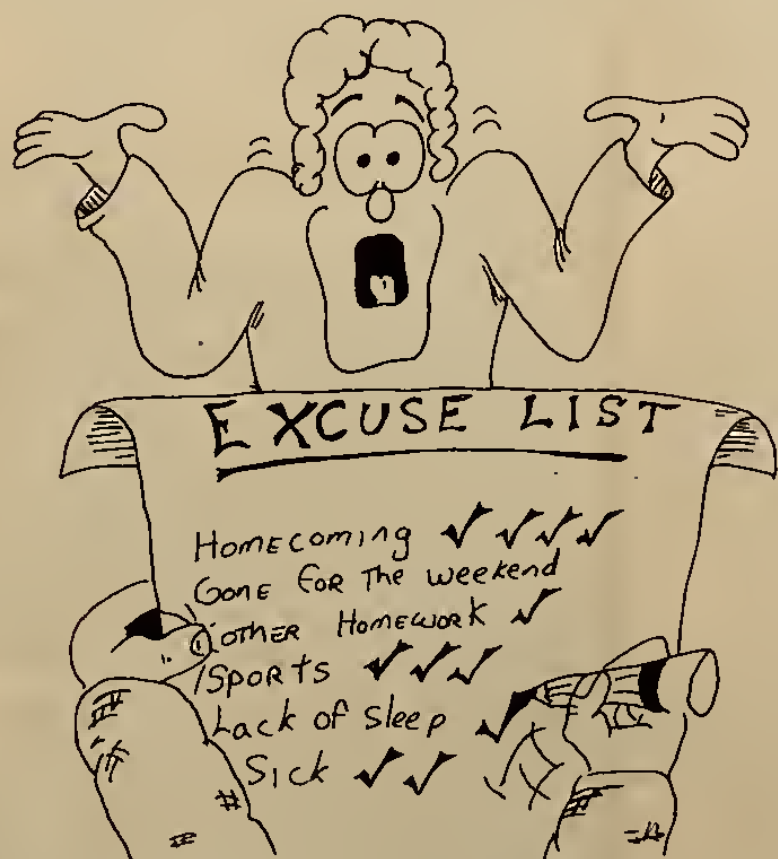 EXCUSE LIST
Homecoming ✓ ✓ ✓ ✓
Gone for the weekend
other Homework ✓
Sports ✓ ✓ ✓
Lack of sleep ✓
Sick ✓ ✓